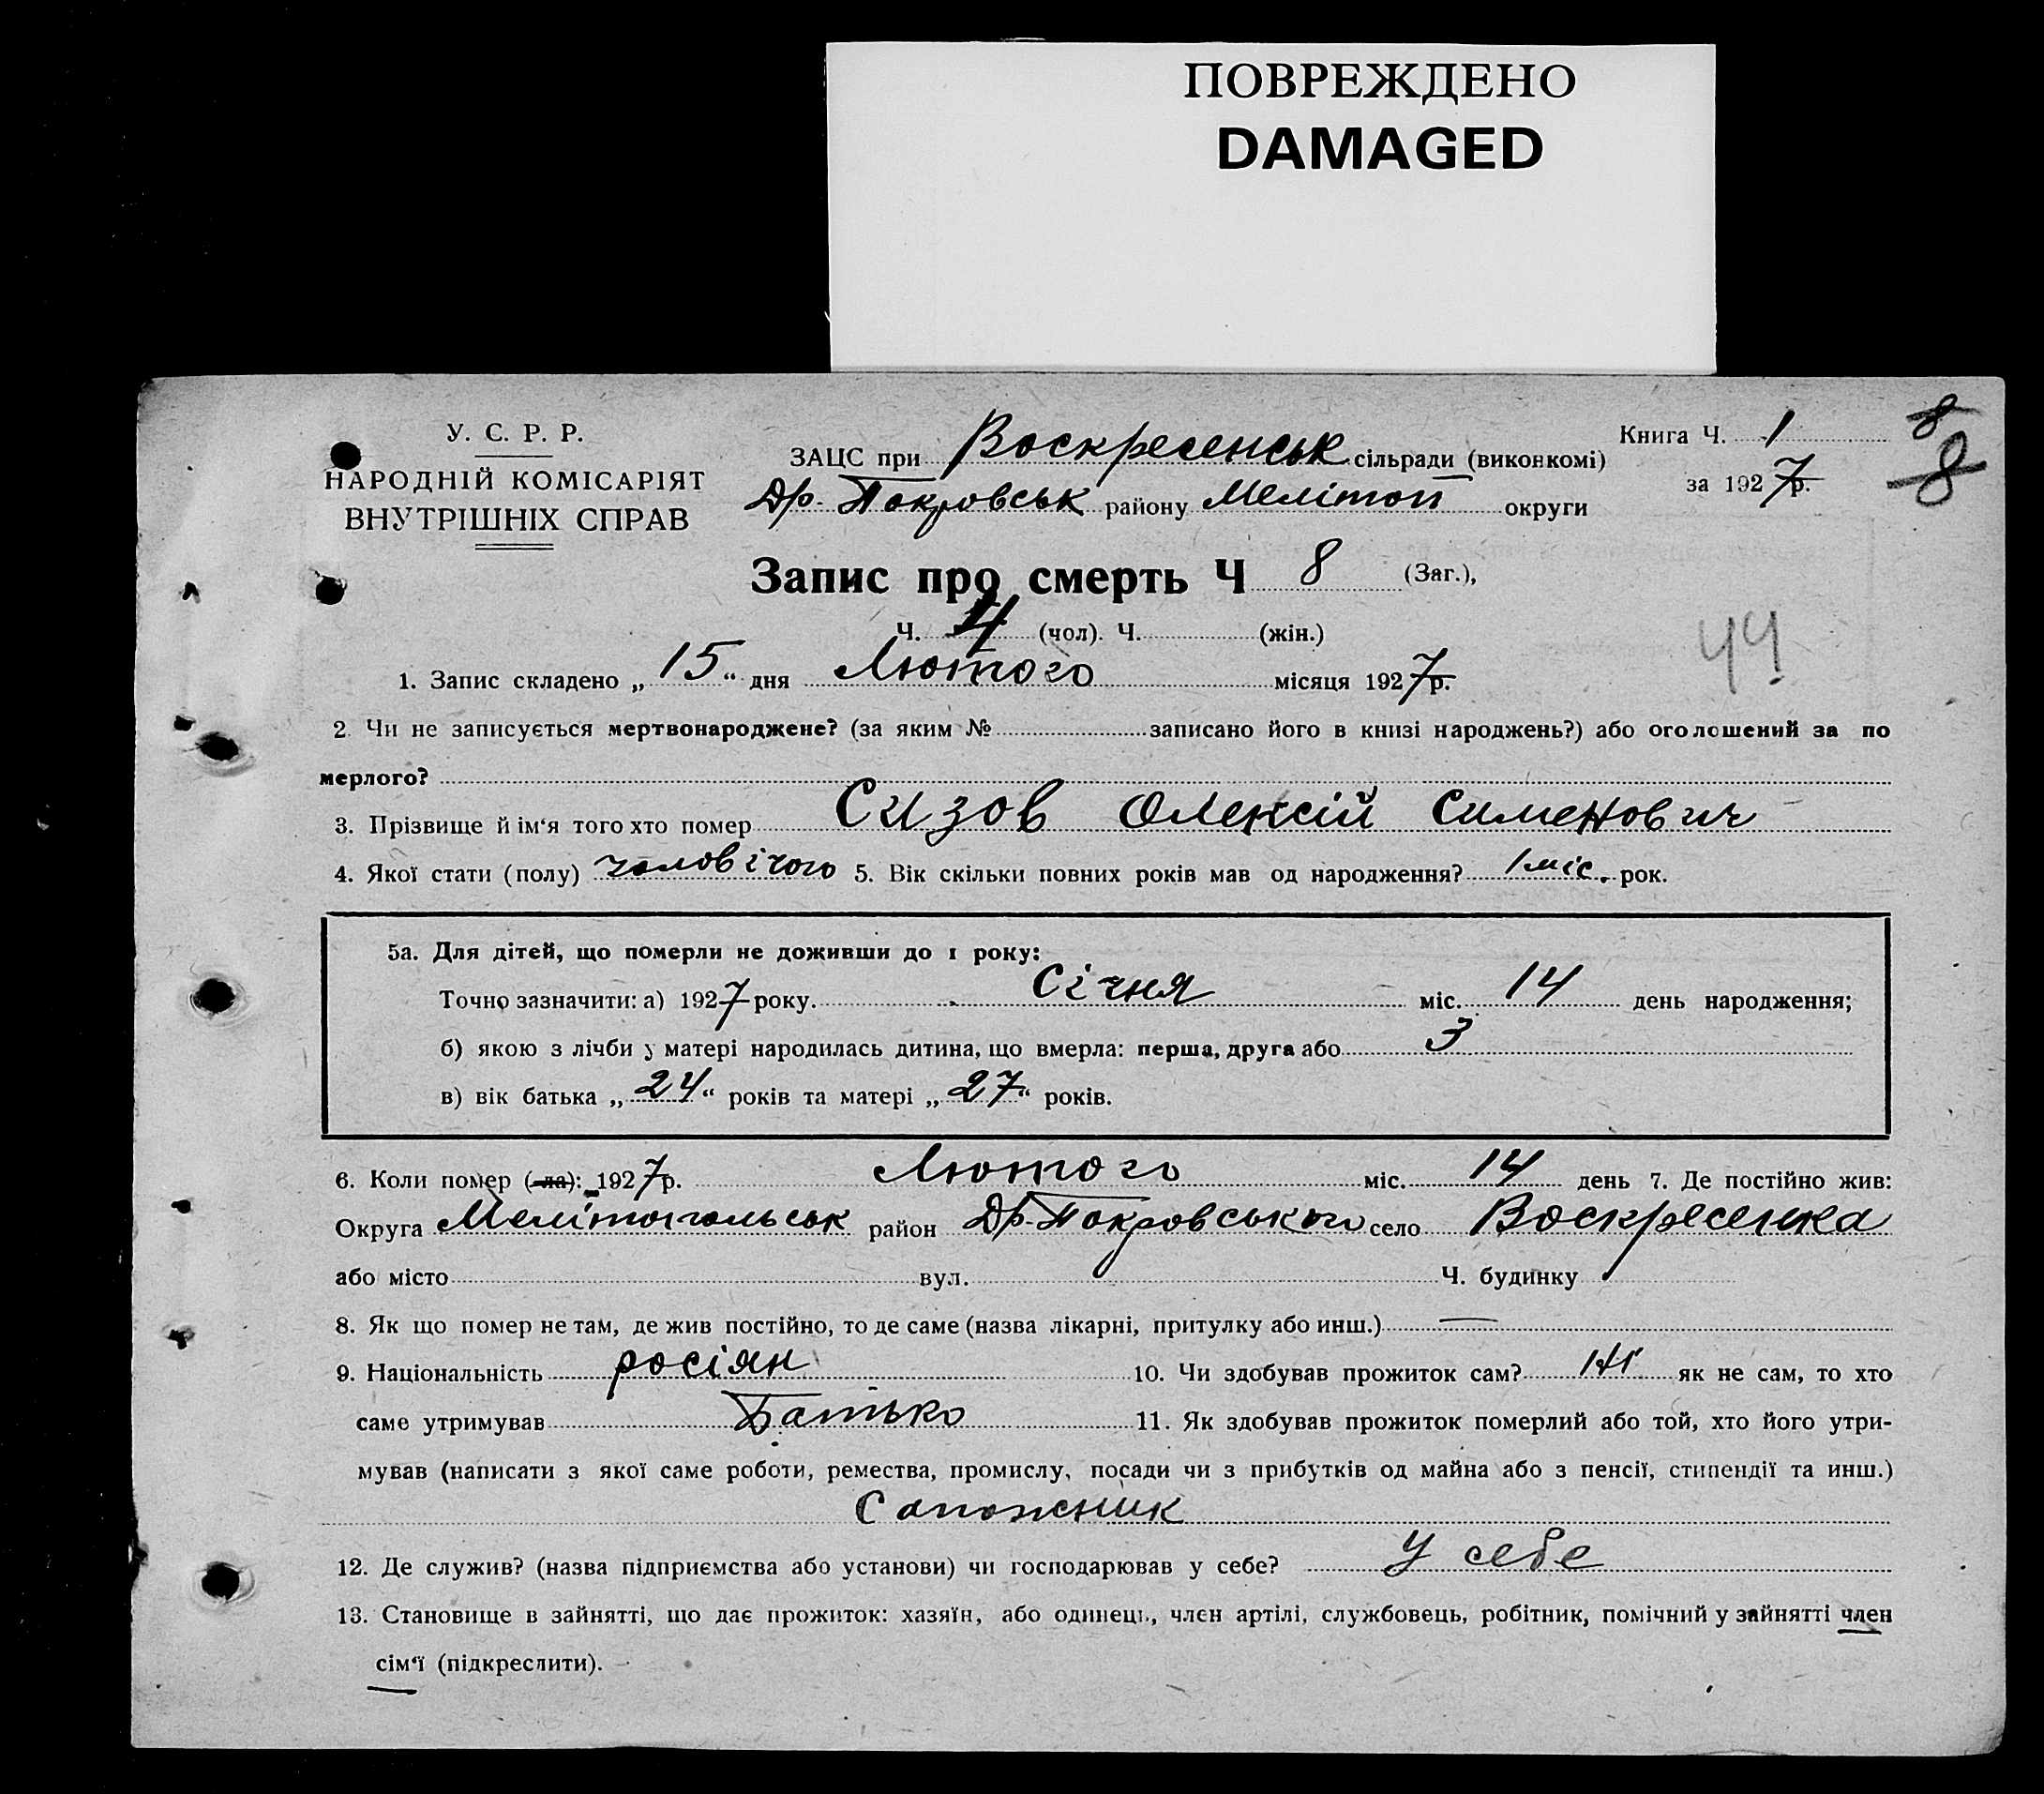 ПОВРЕЖДЕНО
DAMAGED
У. С. Р. Р.
НАРОДНІЙ КОМІСАРІЯТ
ВНУТРІШНІХ СПРАВ
ЗАЦС при Воскресенськ сільради (виконкомі)
Др. Покровськ району Мелітоп округи
Книга Ч. 1
за 1927 р.
8
8
Запис про смерть Ч 8 (Заг.),
Ч. 4 (чол). Ч. (жін.)
44
1. Запис складено „ 15 “ дня Лютого місяця 1927 р.
2. Чи не записується мертвонароджене? (за яким № записано його в книзі народжень?) або оголошений за по
мерлого?
3. Прізвище й ім‘я того хто помер Сизов Олексій Сименович
4. Якої стати (полу) чоловічого 5. Вік скільки повних років мав од народження? 1 міс. рок.
5а. Для дітей, що померли не доживши до 1 року:
Точно зазначити: а) 1927 року. Січня міс. 14 день народження;
б) якою з лічби у матері народилась дитина, що вмерла: перша, друга або 3
в) вік батька „ 24 “ років та матері „ 27 “ років.
6. Коли помер (-ла): 1927 р. Лютого міс. 14 день 7. Де постійно жив:
Округа Мелітопольськ район Др. Покровського село Воскресенка
або місто вул. Ч. будинку
8. Як що помер не там, де жив постійно, то де саме (назва лікарні, притулку або инш.) —
9. Національність росіян 10. Чи здобував прожиток сам? ні як не сам, то хто
саме утримував Батько 11. Як здобував прожиток померлий або той, хто його утри-
мував (написати з якої саме роботи, ремества, промислу, посади чи з прибутків од майна або з пенсії, стипендії та инш.)
Сапожник
12. Де служив? (назва підприємства або установи) чи господарював у себе? У себе
13. Становище в зайнятті, що дає прожиток: хазяїн, або одинець, член артілі, службовець, робітник, помічний у зайнятті член
сім‘ї (підкреслити).